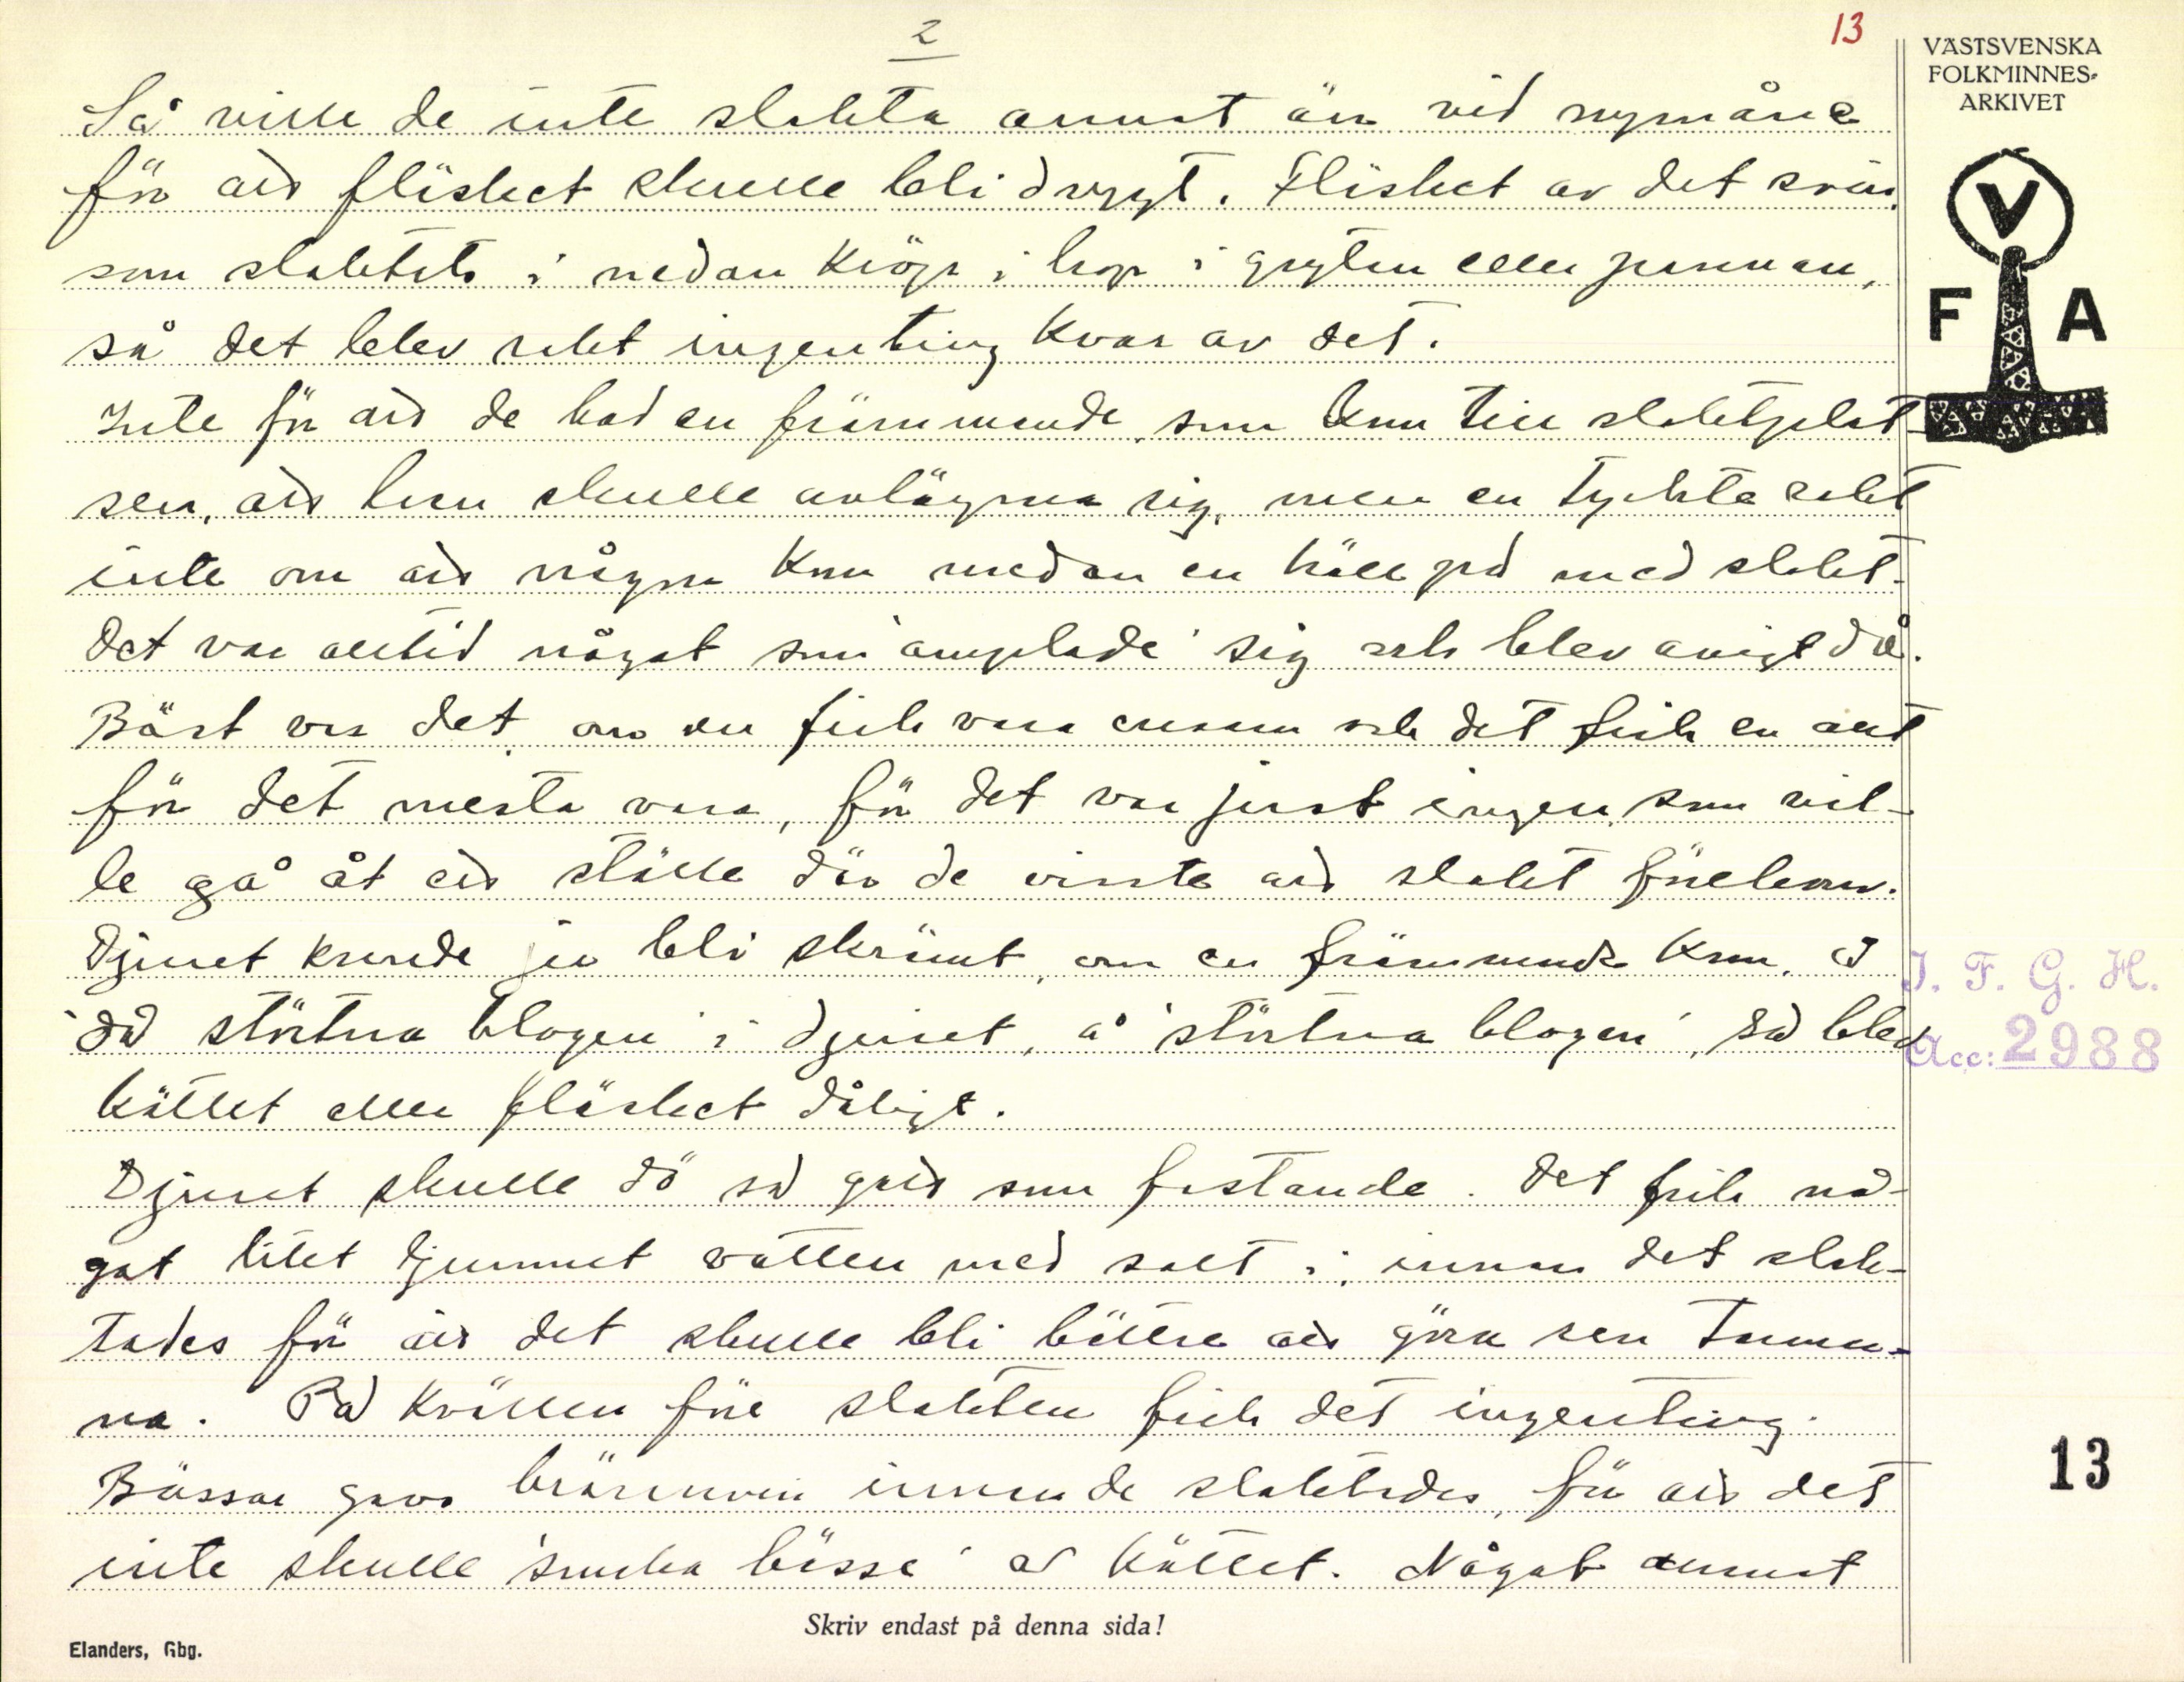 2
13
VÄSTSVENSKA
FOLKMINNES-
ARKIVET
V
F A
Så ville de inte slakta annat än vid nymåne
för att fläsket skulle bli drygt. Fläsket av det svin,
som slaktats i nedan kröp i hop i grytan eller pannan,
så det blev rakt ingenting kvar av det.
Inte för att de bad en främmande, som kom till slaktplat-
sen, att han skulle avlägsna sig, men en tyckte rakt
inte om att någon kom medan en höll på med slakt.
Det var alltid något som 'amplade' sig och blev avigt då.
Bäst var det, om en fick vara ensam och det fick en allt
för det mesta vara, för det var just ingen, som vil-
le gå åt ett ställe där de visste att slakt förekom.
Djuret kunde ju bli skrämt, om en främmande kom, å
'då störtna blogen' i djuret, å 'störtna blogen', så blev
köttet eller fläsket dåligt.
Djuret skulle dö så gott som fastande. Det fick nå-
got litet ljummet vatten med salt i, innan det slak-
tades för att det skulle bli bättre att göra ren tarmar-
na. På kvällen före slakten fick det ingenting.
Bässar gavs brännvin innan de slaktades, för att det
inte skulle 'smaka bässe' av köttet. Något annat
J. F. G. H.
Acc: 2988
13
Skriv endast på denna sida!
Elanders, Gbg.